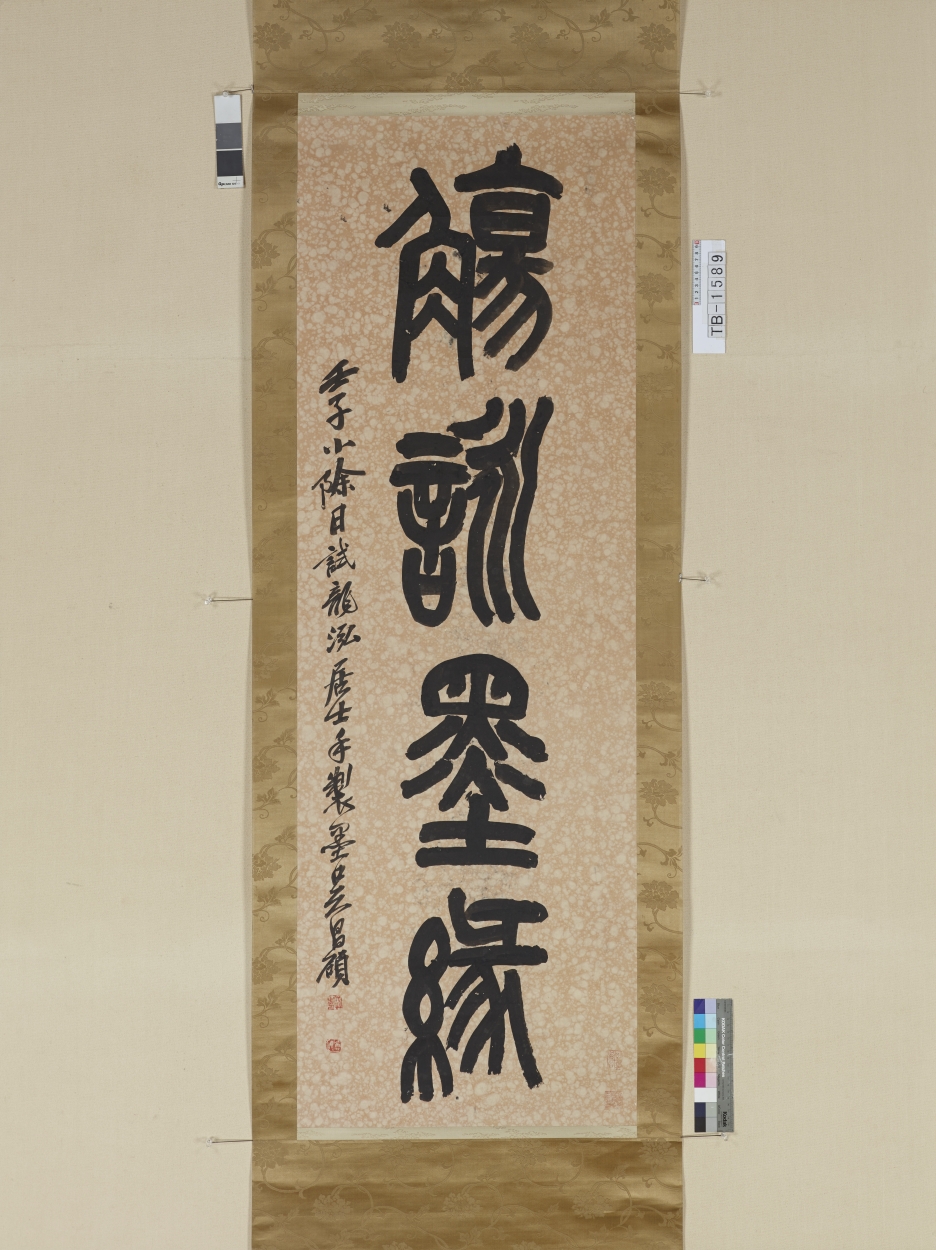 觴詠墨緣
壬子小除日試龍泓居士手製墨吳昌碩
TB-1589
KODAK Color Control Patches
Kodak